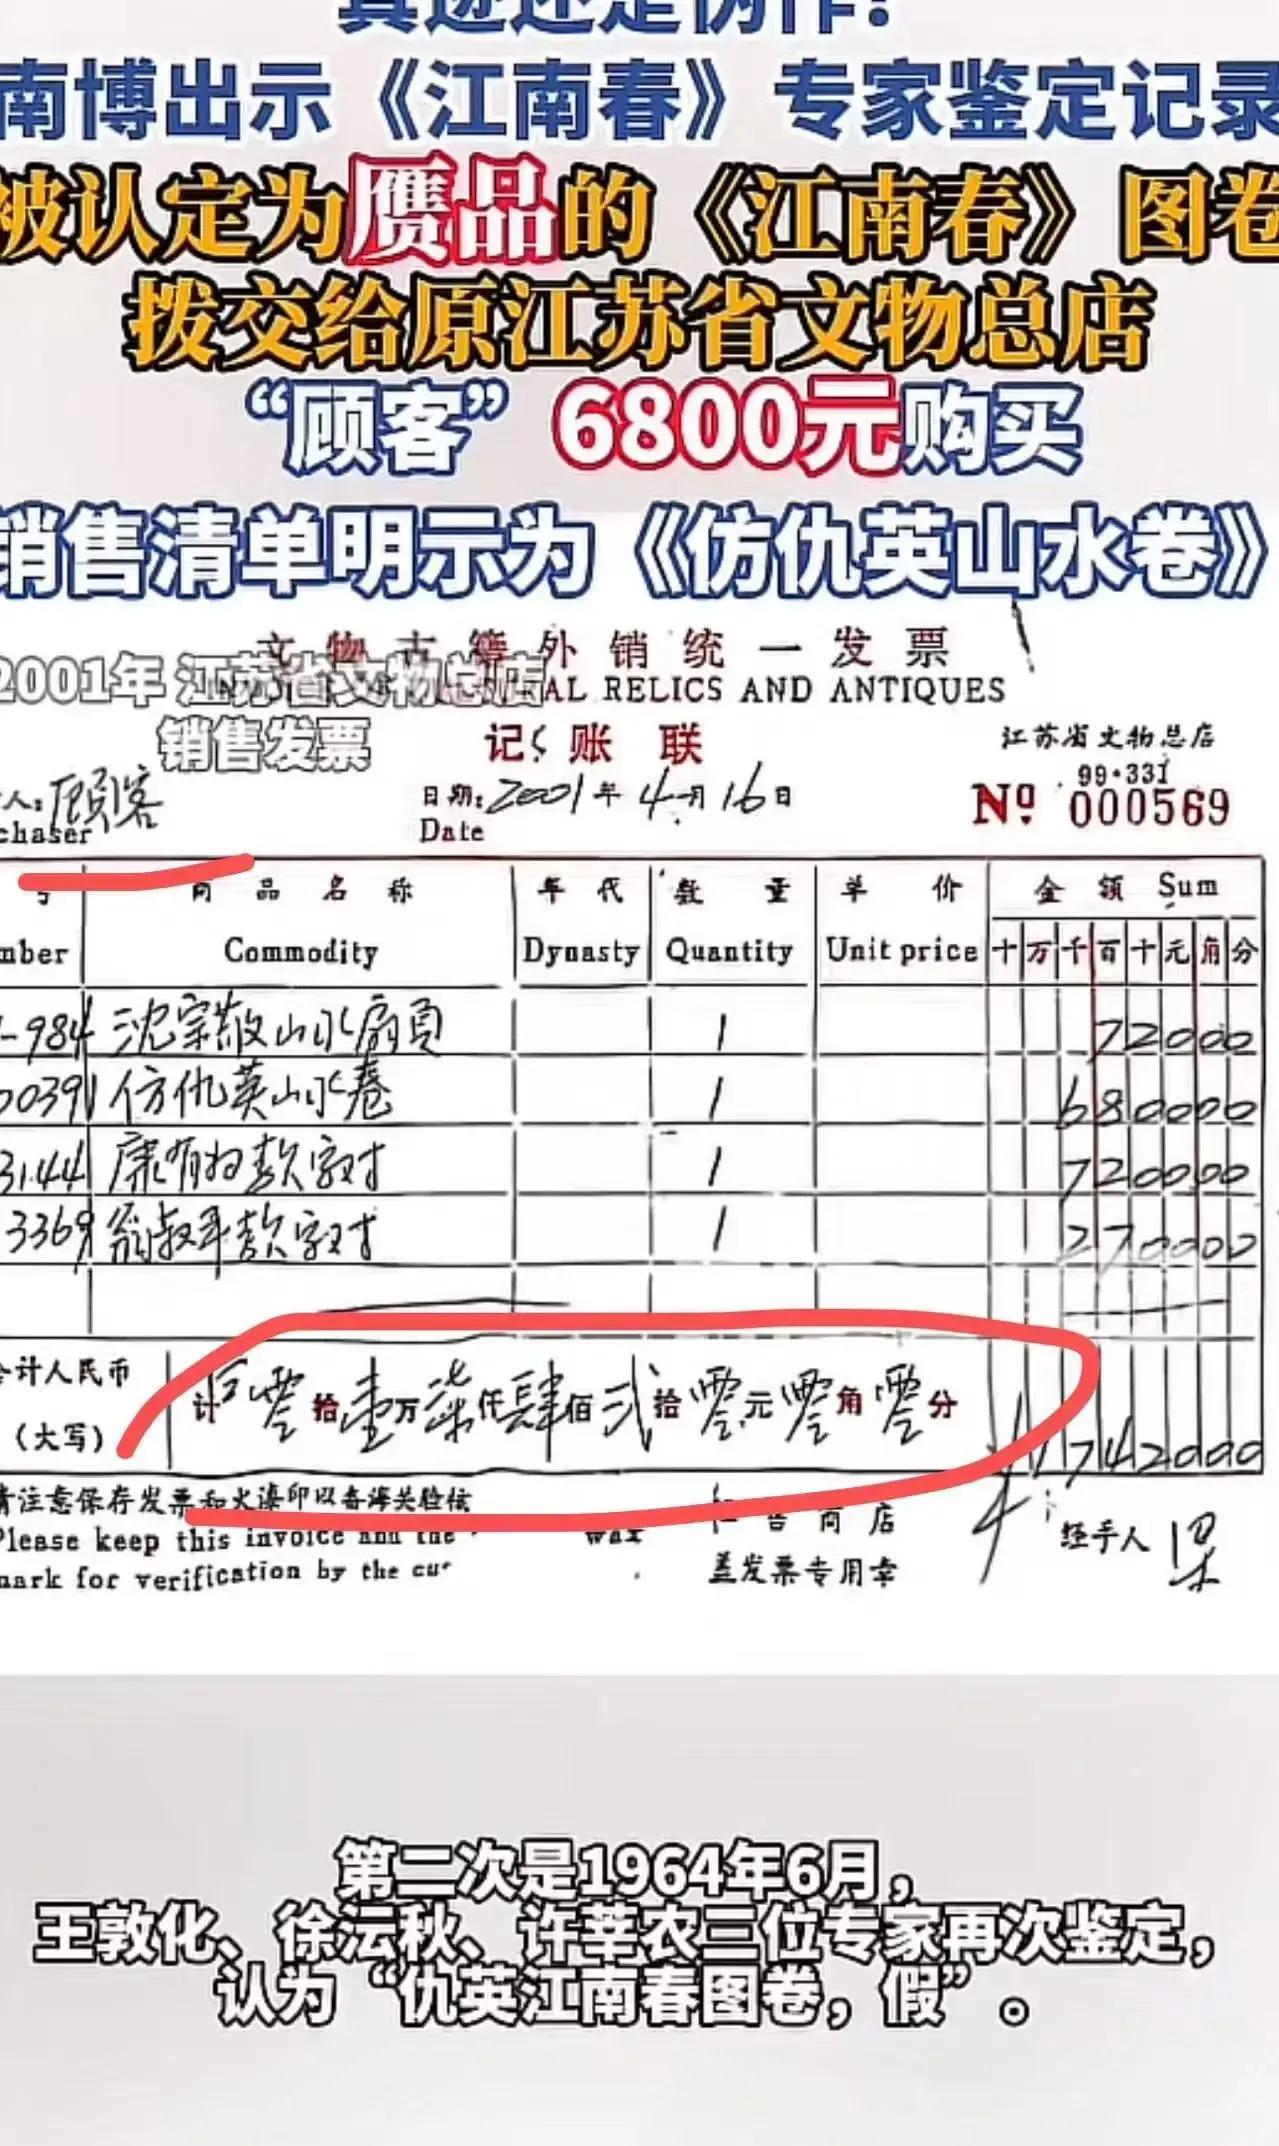 真迹还是伪作?
南博出示《江南春》专家鉴定记录
被认定为赝品的《江南春》图卷
拨交给原江苏省文物总店
“顾客” 6800元购买
销售清单明示为《仿仇英山水卷》
文物古籍外销统一发票
RELICS AND ANTIQUES
2001年 江苏省文物总店
销售发票
记账联
江苏省文物总店
99·331
人:顾客
chaser
日期:2001年4月16日
Date
Nº 000569
号 商品名称 年代 数量 单价 金额 Sum
mber Commodity Dynasty Quantity Unit price 十万千百十元角分
-984 沈宗敬山水扇页 1 72000
00391 仿仇英山水卷 1 680000
3144 康有为款字对 1 720000
3369 翁叔平款字对 1 270000
合计人民币
(大写)
计 零拾壹万柒仟肆佰贰拾零元零角零分 1742000
请注意保存发票和火漆印以备海关验核
Please keep this invoice and the wax
mark for verification by the cu
售商店
盖发票专用章
经手人
第二次是1964年6月,
王敦化、徐沄秋、许莘农三位专家再次鉴定,
认为“仇英江南春图卷,假”。